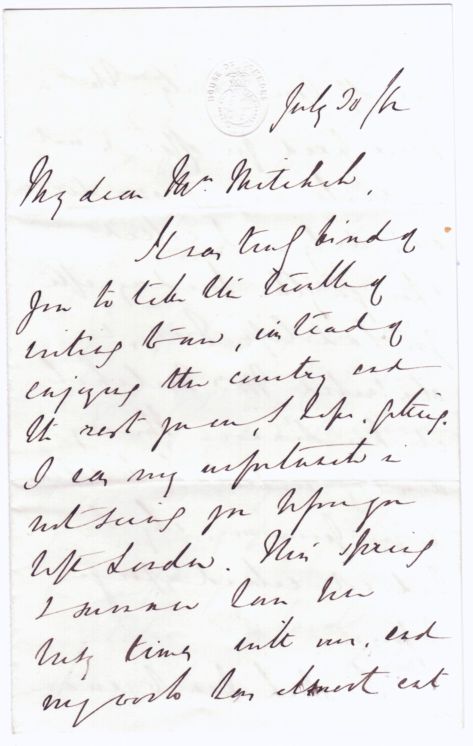 HOUSE OF COMMONS
July 30 /62
My dear Mrs. Mitchell,
It was truly kind of
you to take the trouble of
writing to me, instead of
enjoying the country and
the rest you are, I hope, getting.
I was very unfortunate in
not seeing you before you
left London. This spring
& summer have been
busy times with me, and
my work has almost eat